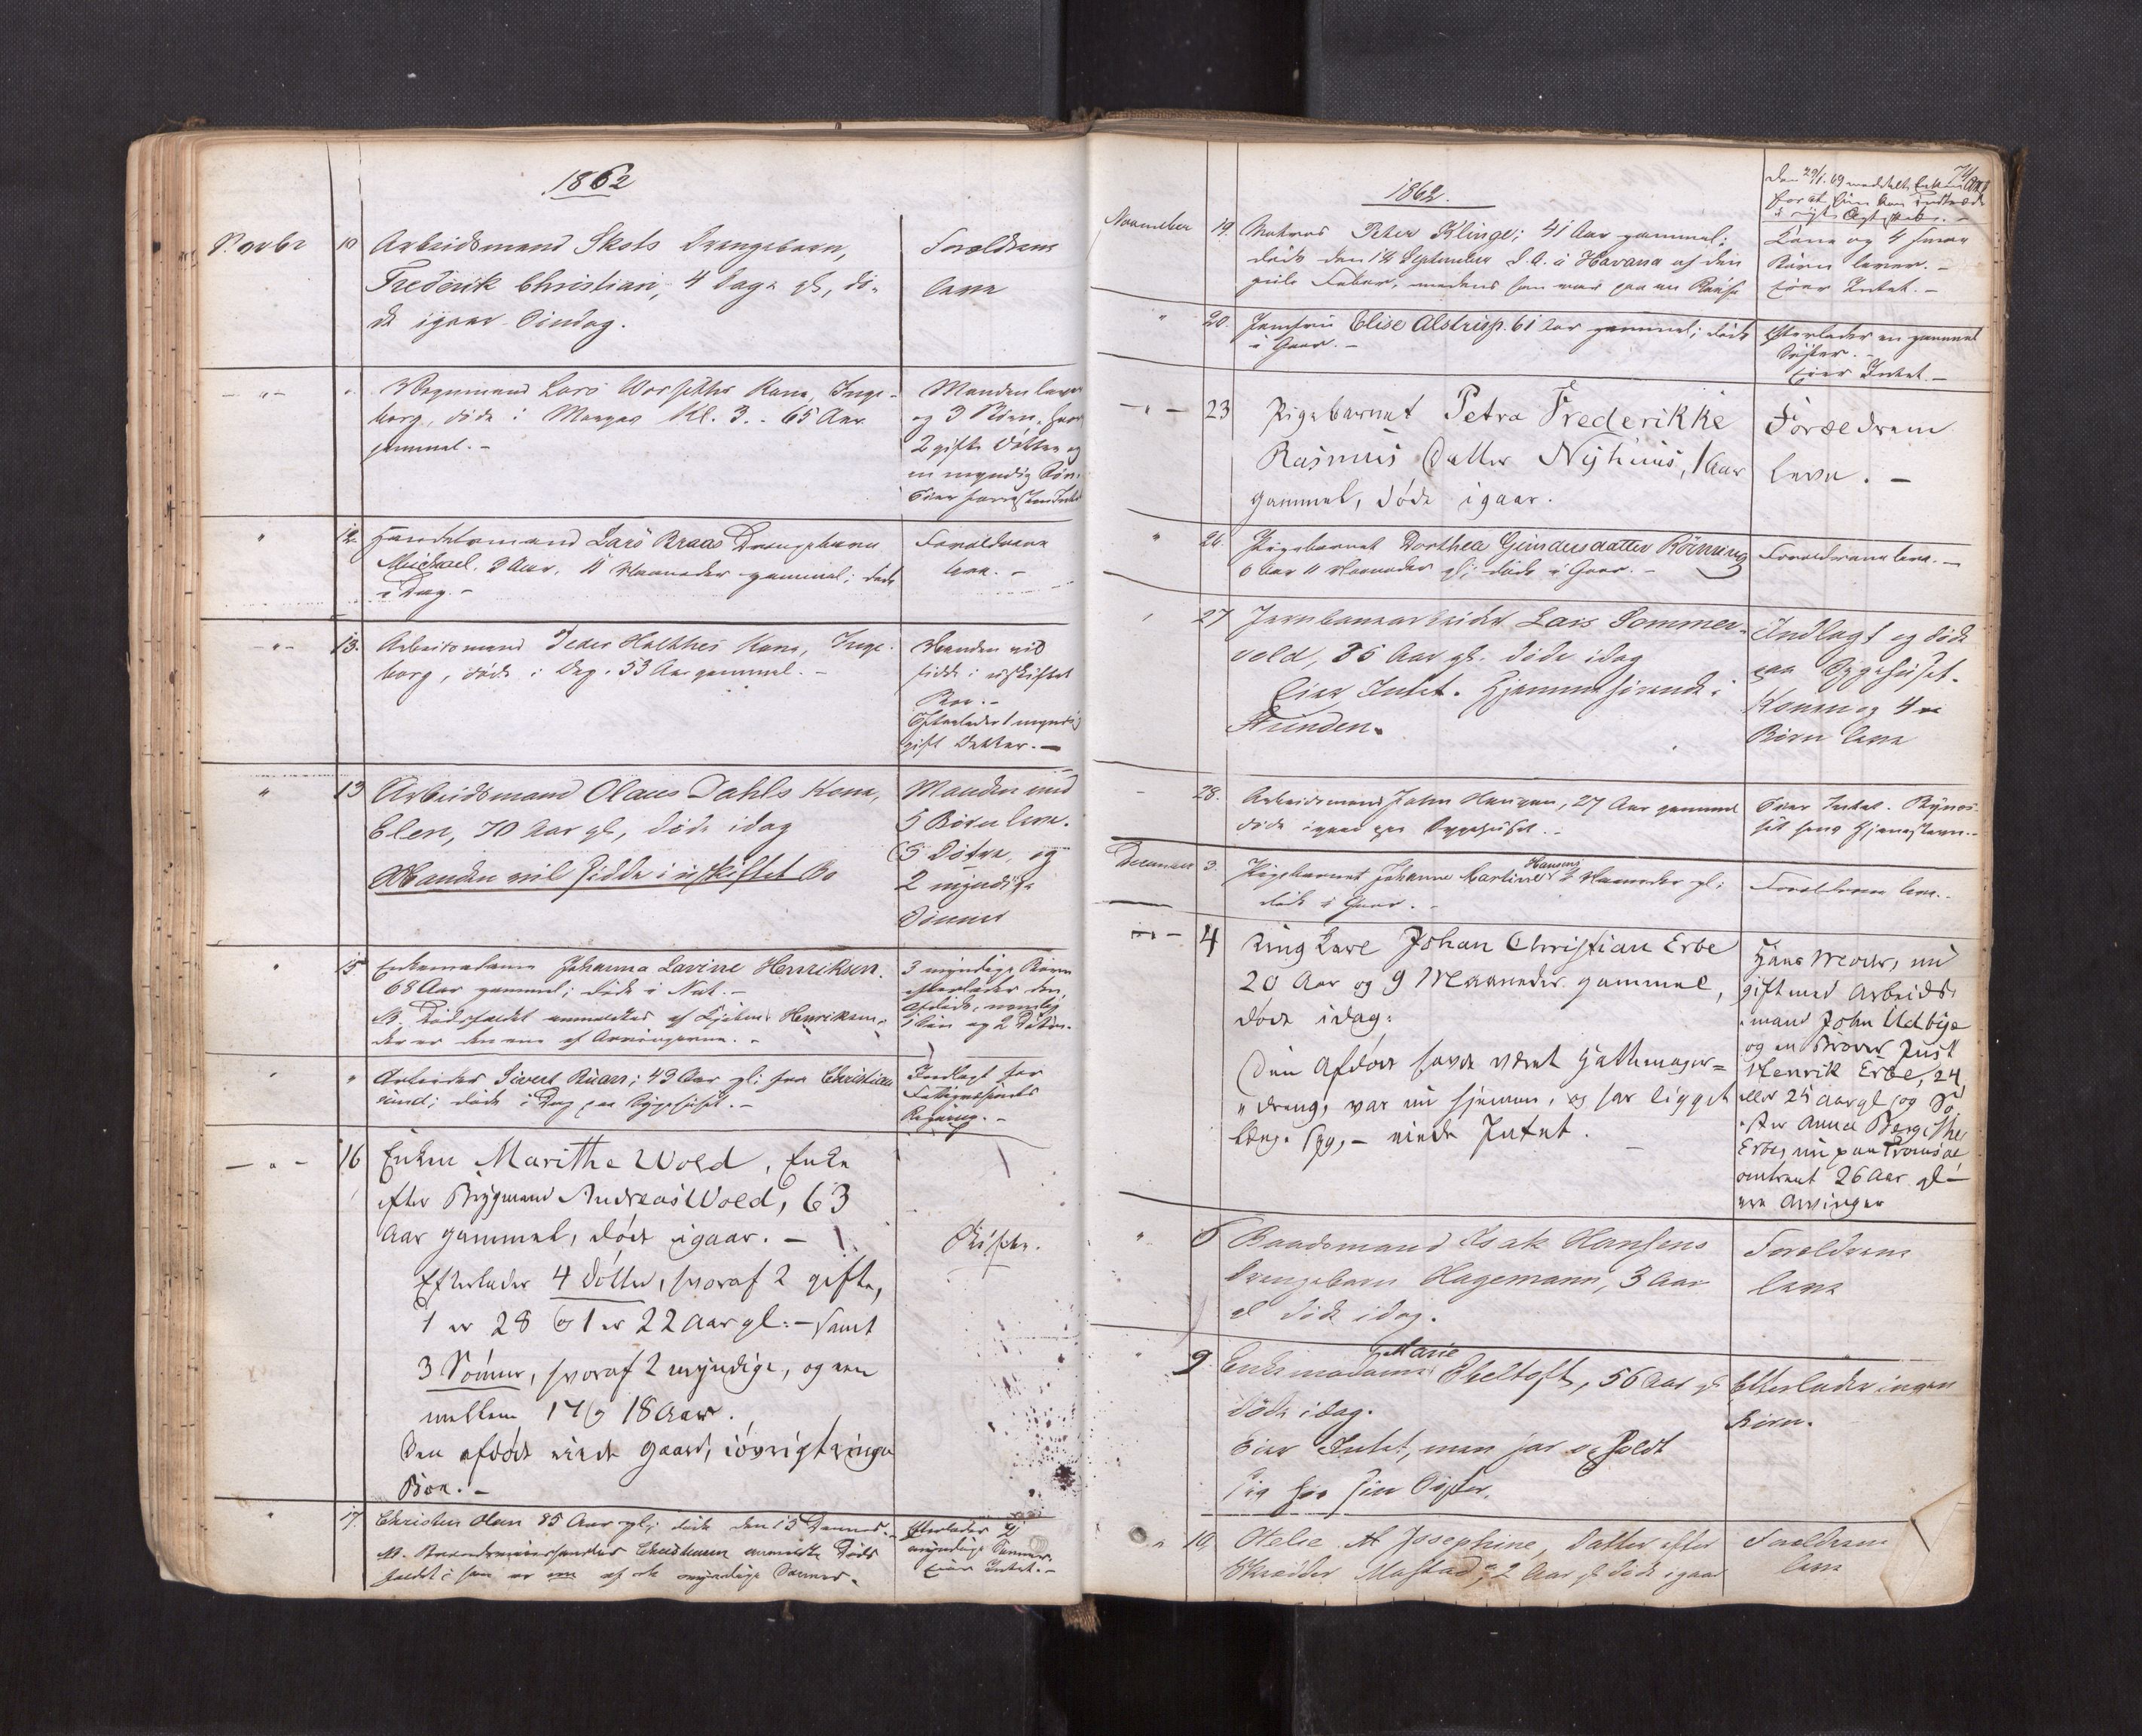 1862
Novbr 10 Arbeidsmand Skots Drengebarn,
Frederik Christian, 4 Dage gl., dö-
de igaar Söndag.
Forældrene
leve
Vognmand Lars Kone, Inge-
borg, döde i Morges Kl. 3. - 65 Aar
gammel. -
Manden lever
og 3 Börn, hvoraf
2 gifte Dötre og
en myndig Sön.
" 12. Handelsmand Lars Braas Drengebarn
Michael. 2 Aar, 11 Maaneder gammel; döde
i Dag. -
Forældrene
leve. -
-"- 13. Arbeidsmand Peder Kone, Inge-
borg, döde i Dag. 53 Aar gammel. -
Manden vil
sidde i uskiftet
Boe. -
Efterlader 1 myndig
gift Datter. -
" 13 Arbeidsmand Olaus Dahls Kone,
Elen, 70 Aar gl., döde idag
Manden vil sidde i uskiftet Bo
Manden med
5 Börn leve.
3 Dötre, og
2 myndige
Sönner
" 15. Enkemadame Johanna Lavine Henriksen.
68 Aar gammel; döde i Nat. -
NB. Dödsfaldet anmeldtes af Henriksen,
der er den ene af Arvingerne. -
3 myndige Börn
efterlader den
afdöde, nemlig
1 Sön og 2 Dötre.
" " Arbeider Sivert Ruan; 43 Aar gl; fra Christian
sund; döde i Dag paa Sygehuset. -
Indlagt for
Fattigvæsenets
Regning. -
-"- 16 Enken Marithe Wold, Enke
efter Brygmand Andreas Wold, 63
Aar gammel, döde igaar. -
Efterlader 4 Döttre, hvoraf 2 gifte,
1 er 28 og 1 er 22 Aar gl: - samt
3 Sönner, hvoraf 2 myndige, og een
mellem 17 og 18 Aar.
Den afdöde eiede Gaard, iövrigt ringe
Boe. -
Skifte.
" 17. Christen Olsen 85 Aar gl; döde den 15 Dennes. -
NB. anmeldte Döds
faldet; han er een af de myndige Sönner.
Efterlader 2
myndige Sönner.
Eier Intet. -
74
1862.
November 19. Matros Peter Klinge; 41 Aar gammel;
döde den 14 September d. A. i Havana af den
gule Feber, medens han var paa en Reise
Den 29/1. 69 meddelt Enken Att
for at hun kan indtræde
i nyt Ægteskab. -
Kone og 4 smaa
Börn lever. -
Eier Intet. -
" 20. Jomfru Elise Alstrup. 61 Aar gammel; döde
i Gaar. -
Efterlader en gammel
Söster. -
Eier Intet. -
-"- 23 Pigebarnet Petra Frederikke
Rasmus Datter Nyhuus, 1 Aar
gammel, döde igaar.
Forældrene
leve. -
" 26. Pigebarnet Dorthea Gundersdatter Rönning
6 Aar 11 Maaneder gl; döde i Gaar. -
Forældrene leve. -
" 27 Jernbanearbeider Lars Sommer-
vold, 35 Aar gl. döde idag
Eier Intet. Hjemmehörende i
Strinden.
Indlagt og döde
paa Sygehuset.
Konen og 4
Börn leve
- 28. Arbeidsmand John Haugan, 27 Aar gammel
döde igaar paa Sygehuset. -
Eier Intet. Bynes-
set hans Hjemstavn. -
December 3. Pigebarnet Johanne Martine Hansens 2 Maaneder gl:
döde i Gaar. -
Forældrene leve. -
-"- 4 Ungkarl Johan Christian Erbe
20 Aar og 9 Maaneder gammel,
döde idag:
Den Afdöde havde været Hattemager-
dreng, var nu hjemme, og har ligget
længe syg, - eiede Intet. -
Hans Moder, nu
gift med Arbeids-
mand John Udbye
og en Broder Just
Henrik Erbe, 24
eller 25 Aar gl og Sö-
ster Anna Bergithe
Erbe, nu paa Tromsöe
omtrent 26 Aar gl -
ere Arvinger
" 6 Baadsmand Isak Hansens
Drengebarn Hagemann, 3 Aar
gl döde idag.
Forældrene
leve
" 9. Enkemadame Marie Ebeltoft, 56 Aar gl
döde idag.
Eier Intet, men har opholdt
sig hos sin Söster.
Efterlader ingen
Börn.
" 10. Otelie M Josephine, Datter efter
Skrædder Mostad, 2 Aar gl döde igaar
Forældrene
leve